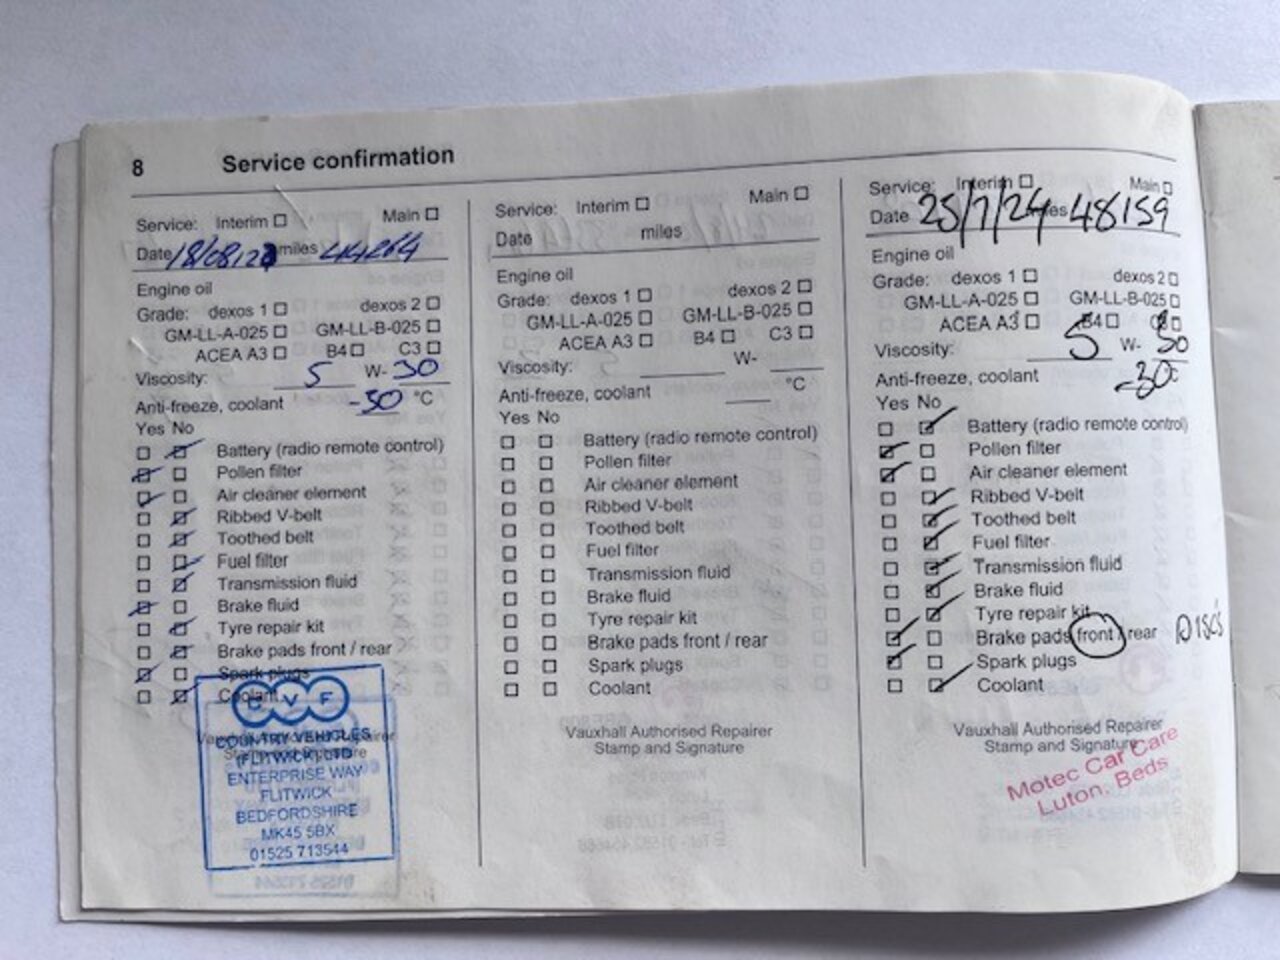 8 Service confirmation
Service: Interim Main
Date 18/08/23 miles 44264
Engine oil
Grade: dexos 1 dexos 2
GM-LL-A-025 GM-LL-B-025
ACEA A3 B4 C3
Viscosity: 5 W- 30
Anti-freeze, coolant -30 °C
Yes No
Battery (radio remote control)
Pollen filter
Air cleaner element
Ribbed V-belt
Toothed belt
Fuel filter
Transmission fluid
Brake fluid
Tyre repair kit
Brake pads front / rear
Spark plugs
Coolant
Vauxhall Authorised Repairer
Stamp and Signature
CVF
COUNTRY VEHICLES
(FLITWICK) LTD
ENTERPRISE WAY
FLITWICK
BEDFORDSHIRE
MK45 5BX
01525 713544
Service: Interim Main
Date miles
Engine oil
Grade: dexos 1 dexos 2
GM-LL-A-025 GM-LL-B-025
ACEA A3 B4 C3
Viscosity: W-
Anti-freeze, coolant °C
Yes No
Battery (radio remote control)
Pollen filter
Air cleaner element
Ribbed V-belt
Toothed belt
Fuel filter
Transmission fluid
Brake fluid
Tyre repair kit
Brake pads front / rear
Spark plugs
Coolant
Vauxhall Authorised Repairer
Stamp and Signature
Service: Interim Main
Date 25/7/24 miles 48159
Engine oil
Grade: dexos 1 dexos 2
GM-LL-A-025 GM-LL-B-025
ACEA A3 B4 C3
Viscosity: 5 W- 30
Anti-freeze, coolant -30 °C
Yes No
Battery (radio remote control)
Pollen filter
Air cleaner element
Ribbed V-belt
Toothed belt
Fuel filter
Transmission fluid
Brake fluid
Tyre repair kit
Brake pads front / rear DISCS
Spark plugs
Coolant
Vauxhall Authorised Repairer
Stamp and Signature
Motec Car Care
Luton. Beds